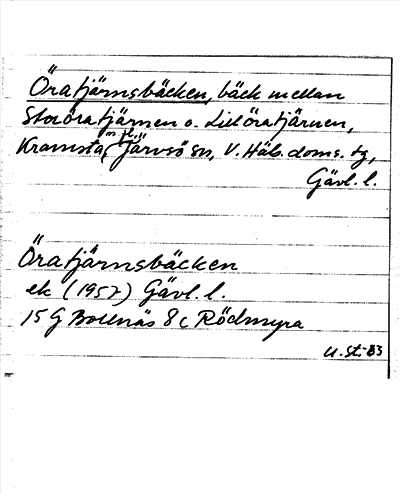 Öratjärnsbäcken, bäck mellan
Storöratjärnen o. Lillöratjärnen,
Kramsta, m. fl., Järvsö sn, V. Häls. doms. tg,
Gävl. l.
Öratjärnsbäcken
ek (1957) Gävl. l.
15 G Bollnäs 8 c Rödmyra
U. St:-83